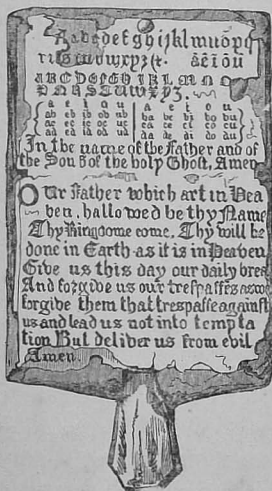 Aabcdefghijklmnopq
rsstuvwxyz &. aeiou
ABCDEFGHIKLMNO
PQRSTUVWXYZ.
a e i o u a e i o u
ab eb ib ob ub ba be bi bo bu
ac ec ic oc uc ca ce ci co cu
ad ed id od ud da de di do du
In the name of the Father and of
the Son & of the holy Ghost, Amen
Our Father which art in Hea
ven, hallowed be thy Name
Thy Kingdome come, Thy will be
done in Earth as it is in Heaven
Give us this day our daily bread
And forgive us our trespasses as we
forgive them that trespasse against
us and lead us not into tempta
tion But deliver us from evil
Amen.